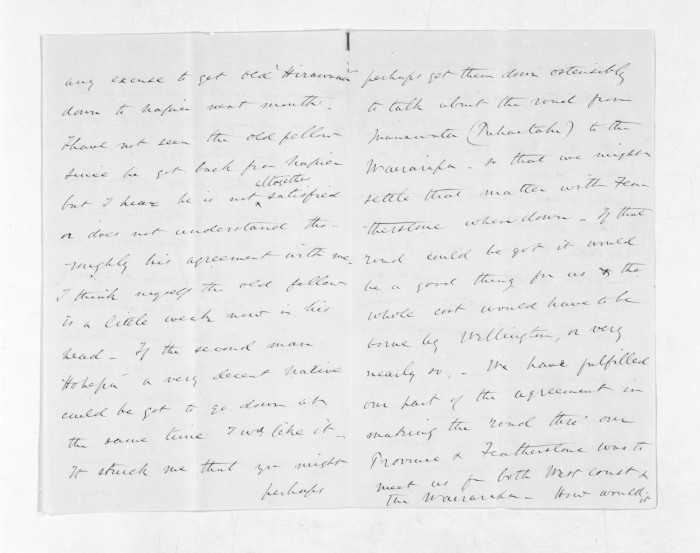 any excuse to get old "Hirawanu"
down to Napier next month.
I have not seen the old fellow
since he got back from Napier
but I hear he is not altogether satisfied
or does not understand tho-
-roughly his agreement with me.
I think myself the old fellow
is a little weak now in his
head - If the second man
"Hohepa" a very decent native
could be got to go down at
the same time I wd. like it -
It struck me that you might
perhaps
perhaps get them down ostensibly
to talk about the road from
Manawatu (Puhaitahi) to the
Wairarapa - so that we might
settle that matter with Fea-
therstone when down - If that
road could be got it would
be a good thing for us & the
whole cost would have to be
borne by Wellington, or very
nearly so, - We have fulfilled
our part of the agreement in
making the road thro' our
Province & Featherstone was to
meet us for both West coast &
the Wairarapa - How would it